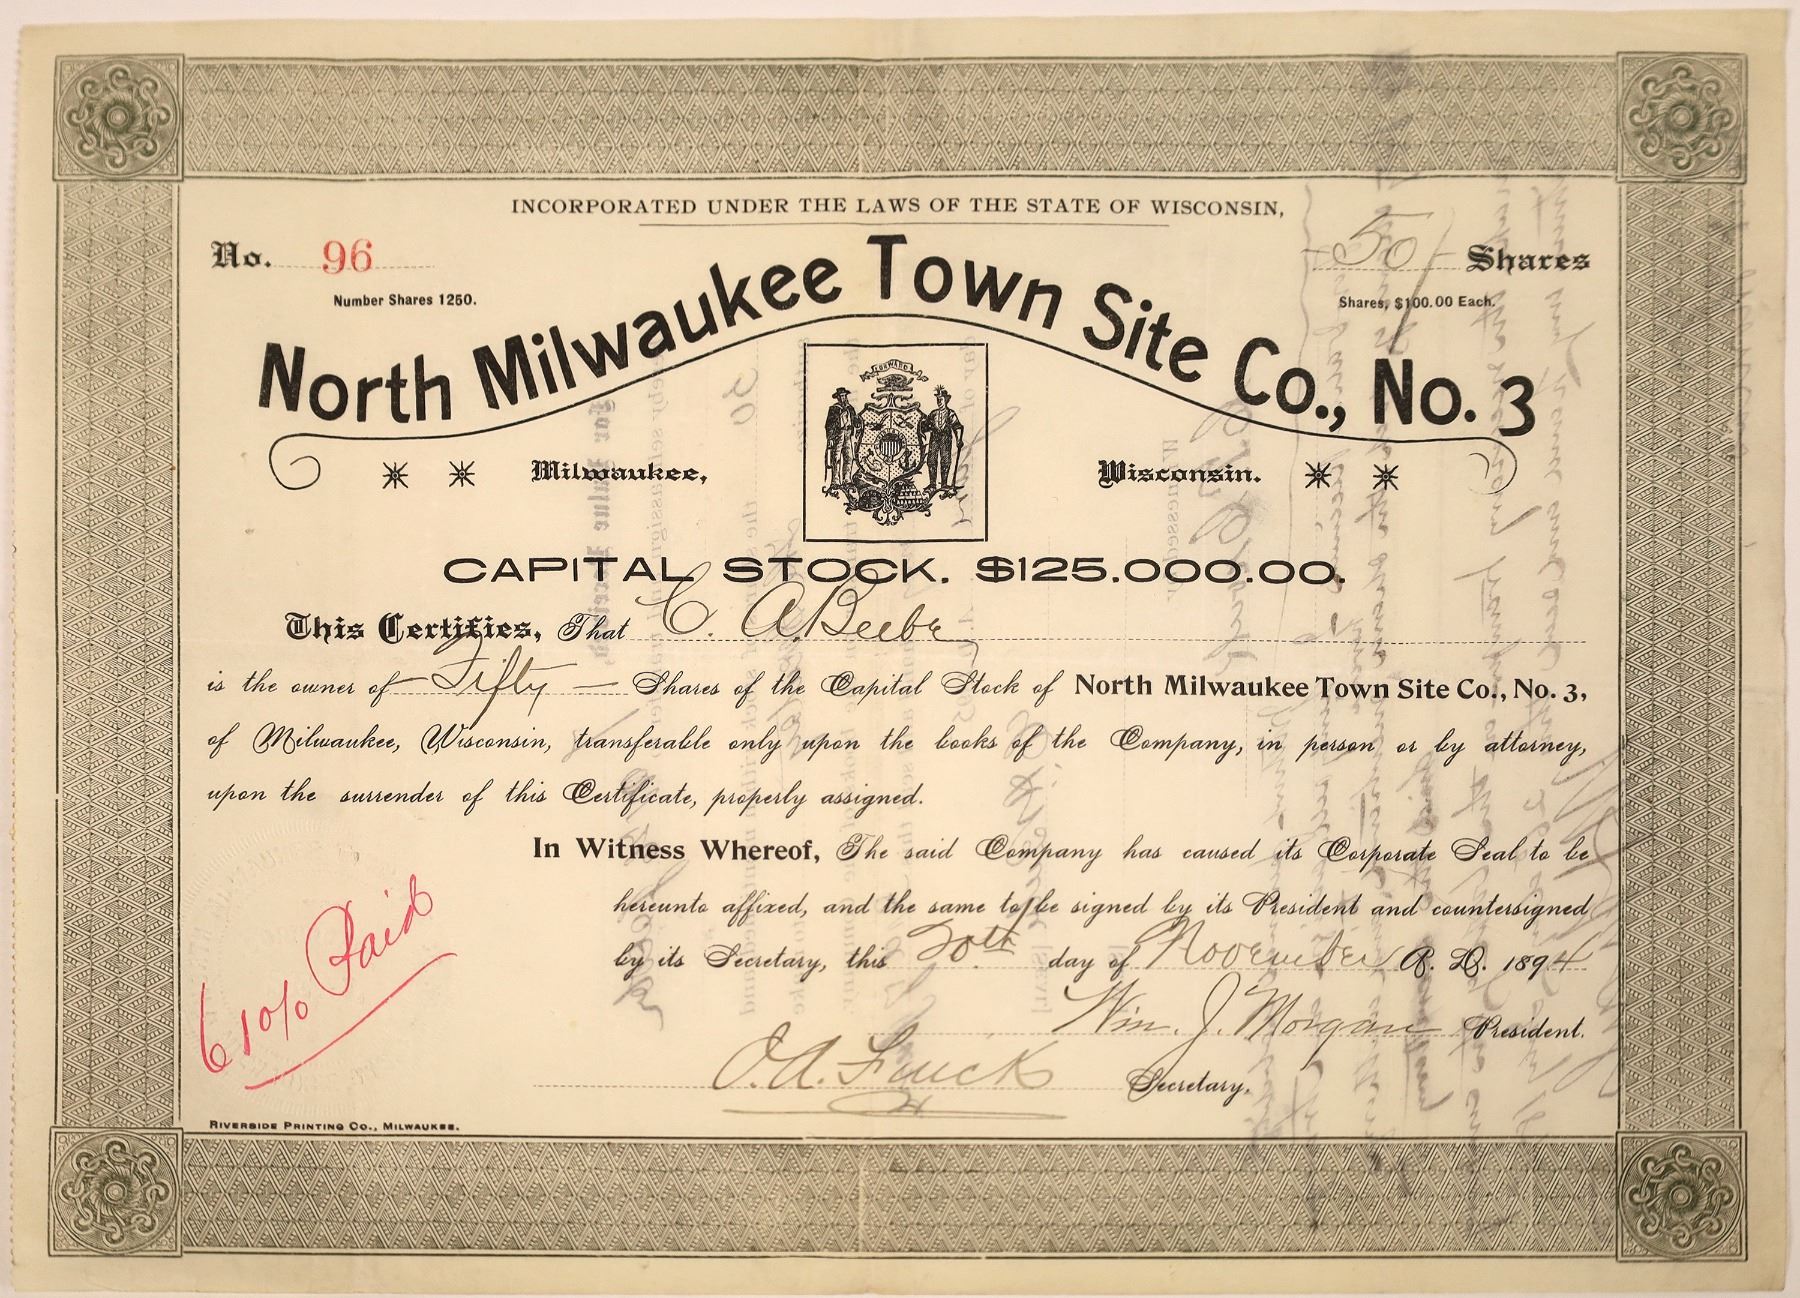 INCORPORATED UNDER THE LAWS OF THE STATE OF WISCONSIN,
No. 96
50 Shares
Number Shares 1250.
Shares, $100.00 Each.
North Milwaukee Town Site Co., No. 3
FORWARD
Milwaukee, Wisconsin.
CAPITAL STOCK. $125.000.00.
This Certifies, That C. A. Beebe
is the owner of Fifty Shares of the Capital Stock of North Milwaukee Town Site Co., No. 3,
of Milwaukee, Wisconsin, transferable only upon the books of the Company, in person or by attorney,
upon the surrender of this Certificate, properly assigned.
In Witness Whereof, The said Company has caused its Corporate Seal to be
hereunto affixed, and the same to be signed by its President and countersigned
by its Secretary, this 20th day of November A. D. 1894
Wm. J. Morgan President.
Secretary.
10% Paid
RIVERSIDE PRINTING CO., MILWAUKEE.